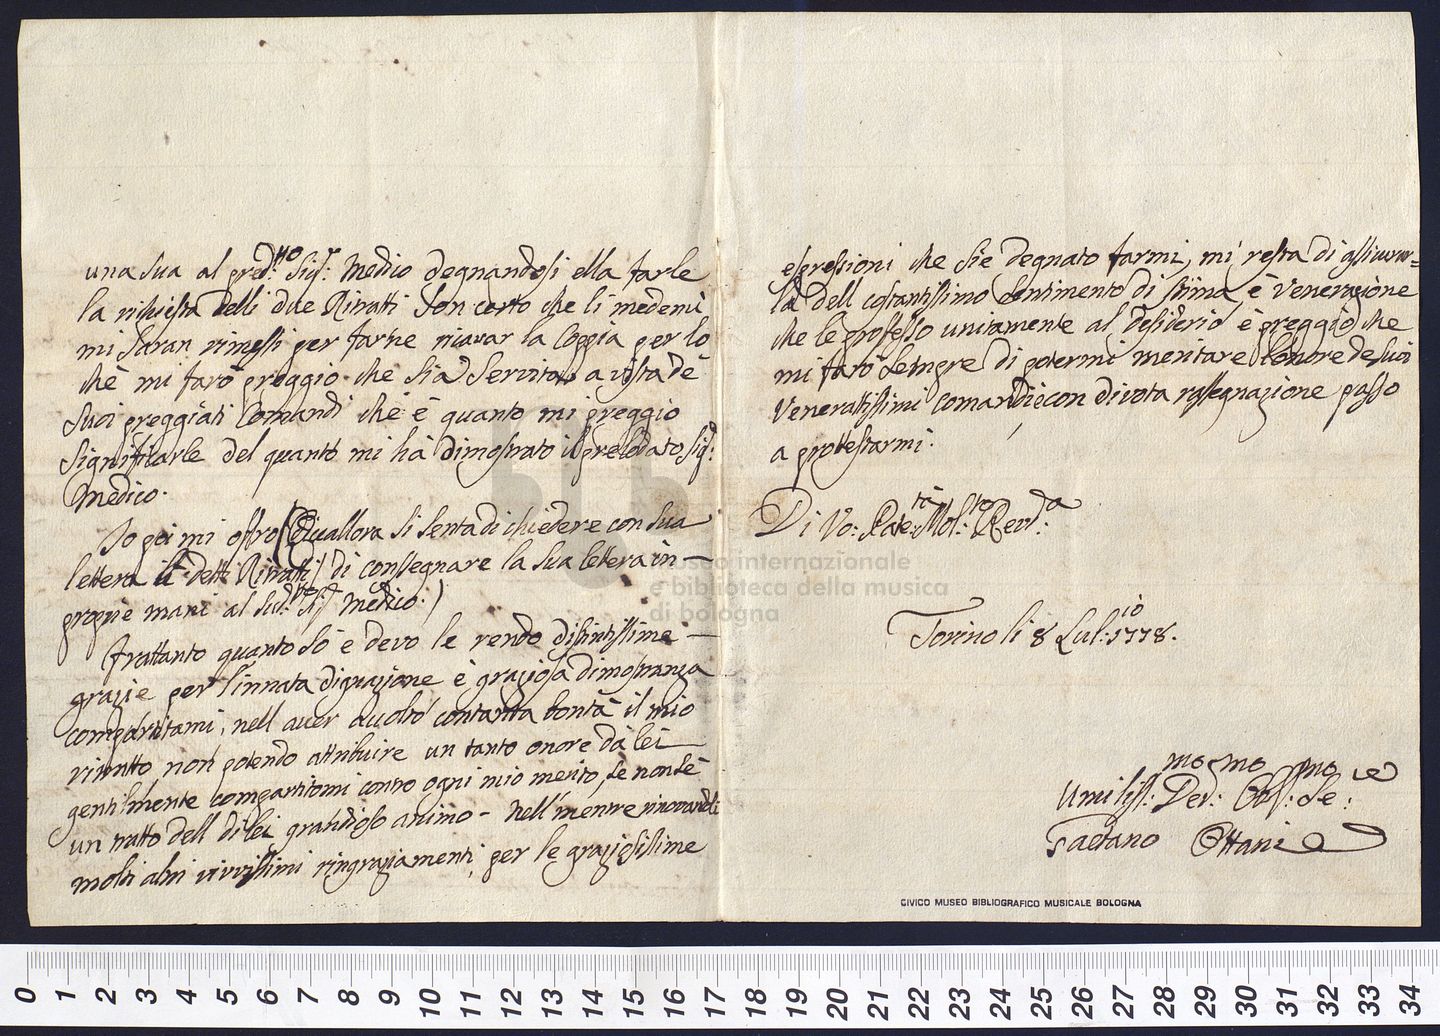 una sua al pred.tto Sig.r Medico degnandosi ella farle
la richiesta delli due Ritratti son certo che li medemi
mi saran rimessi per farne ricavar la Coppia per lo
chè mi farò preggio che sia servita a vista de
suoi preggiati Comandi che è quanto mi preggio
significarle del quanto mi hà dimostrato il prelodato Sig.r
Medico.
Io poi mi offro (Quallora si senta di chiedere con sua
lettera li detti Ritratti) di consegnare la sua lettera in
proprie mani al Sud.to Sig.r Medico.)
Frattanto quanto sò e devo le rendo distintissime
grazie per l'innata degnazione è graziosa dimostranza
compartitami, nell aver accolto con tanta bontà il mio
ritratto non potendo attribuire un tanto onore da lei
gentilmente compartitomi contro ogni mio merito, se non sè
un tratto dell di lei grandioso animo - nell'mentre rinovandoli
molti altri vivissimi ringraziamenti per le graziosissime
espressioni che sie degnato farmi, mi resta di assicurar=
la dell costantissimo sentimento di stima è venerazione
che le professo unitamente al desiderio è preggio che
mi farò sempre di potermi meritare l'onore de suoi
Venerattissimi comandi è con divota rassegnazione passo
a protestarmi.
Di Vo: Pate:tà Mol:to Rev.da
Torino li 8 Lul:io 1778.
Umiliss:mo Dev:mo Obb:mo Se:re
Gaetano Ottani
CIVICO MUSEO BIBLIOGRAFICO MUSICALE BOLOGNA
museo internazionale
e biblioteca della musica
di bologna
0 1 2 3 4 5 6 7 8 9 10 11 12 13 14 15 16 17 18 19 20 21 22 23 24 25 26 27 28 29 30 31 32 33 34